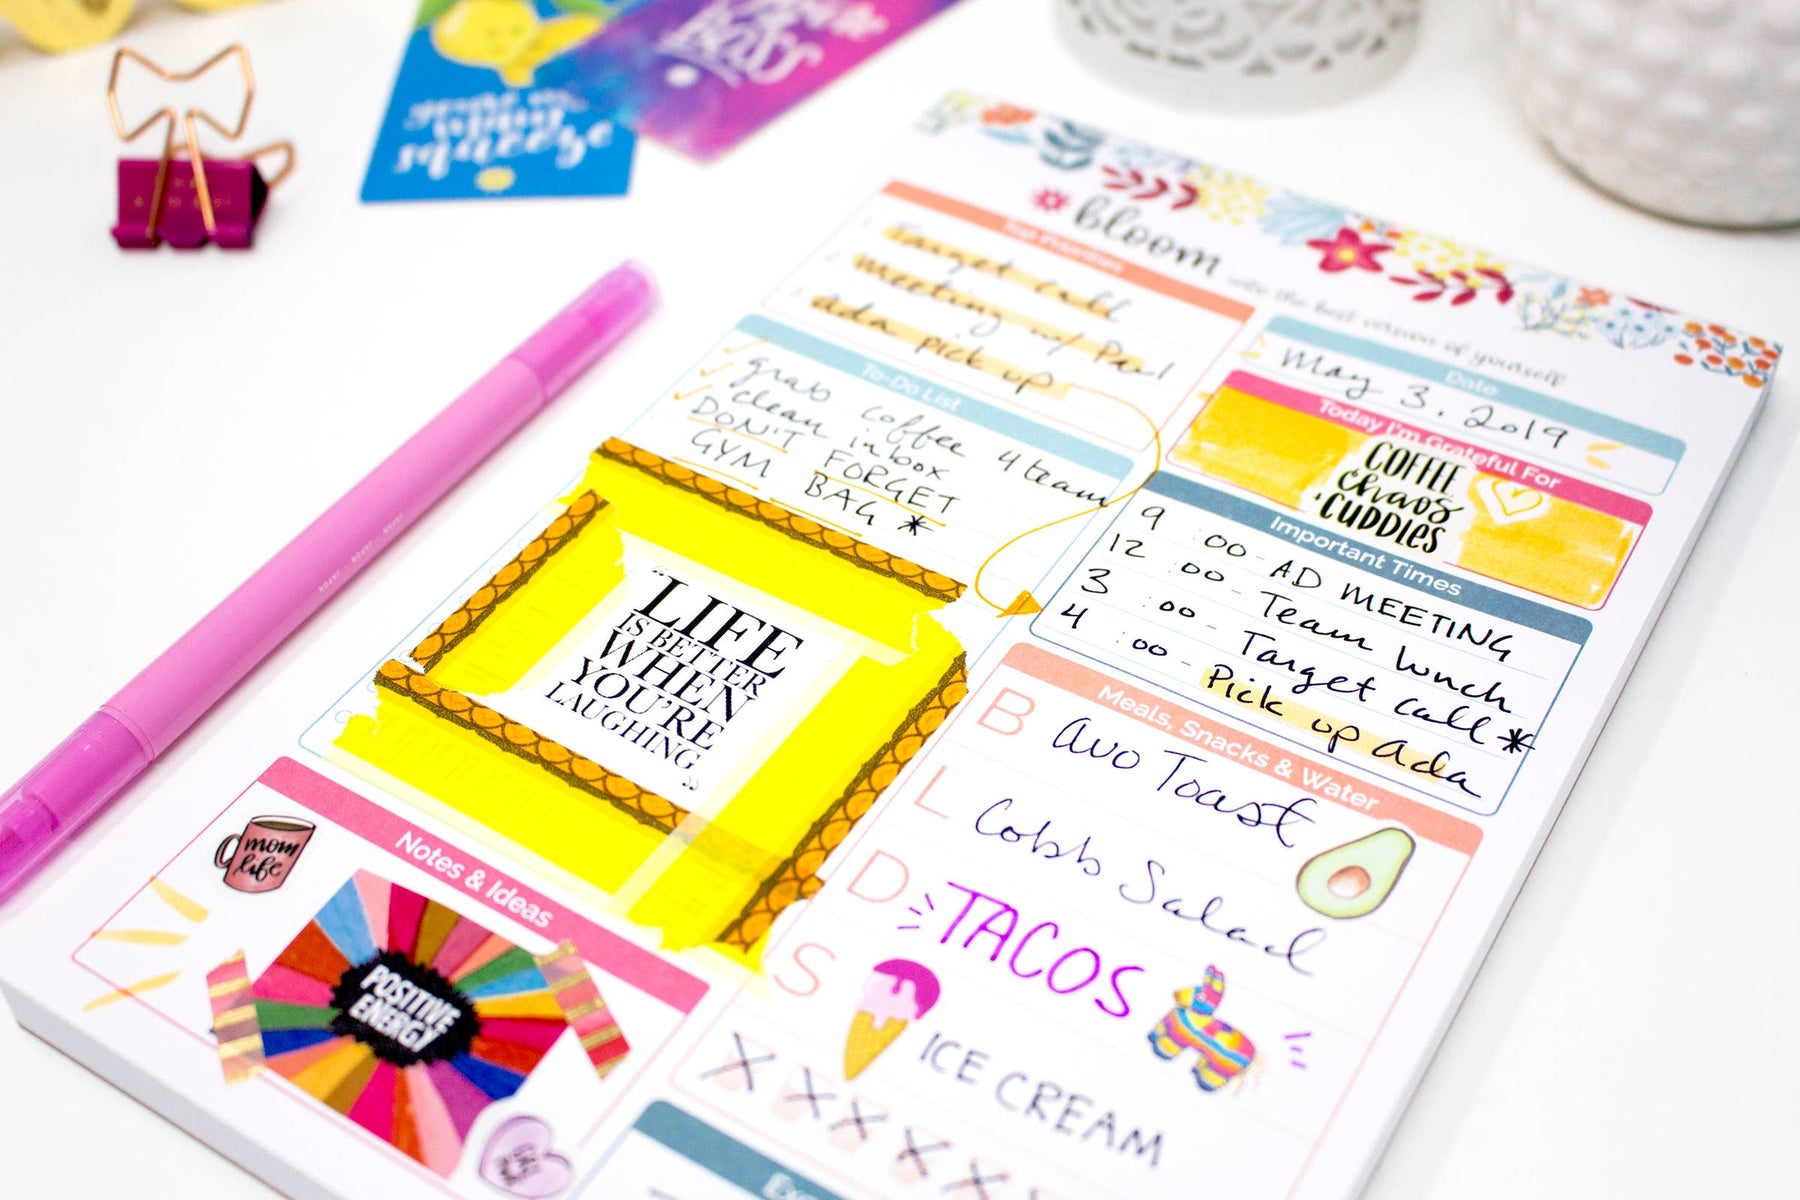 you're my
main
squeeze
Boss
bloom
into the best version of yourself
Top Priorities
1 Target call
2 meeting w/ Paul
3 Ada pick up
Date
May 3. 2019
To-Do List
grab coffee 4 team
clean inbox
DON'T FORGET
GYM BAG *
Today I'm Grateful For
COFFEE
chaos
& CUDDLES
Important Times
9 :00 - AD MEETING
12 :00 - Team Lunch
3 :00 - Target call *
4 :00 - Pick up Ada
"LIFE
IS BETTER
WHEN
YOU'RE
LAUGHING
"
Meals, Snacks & Water
B avo Toast
L Cobb Salad
D TACOS
S ICE CREAM
X X X X X X
Notes & Ideas
mom
life
POSITIVE
ENERGY